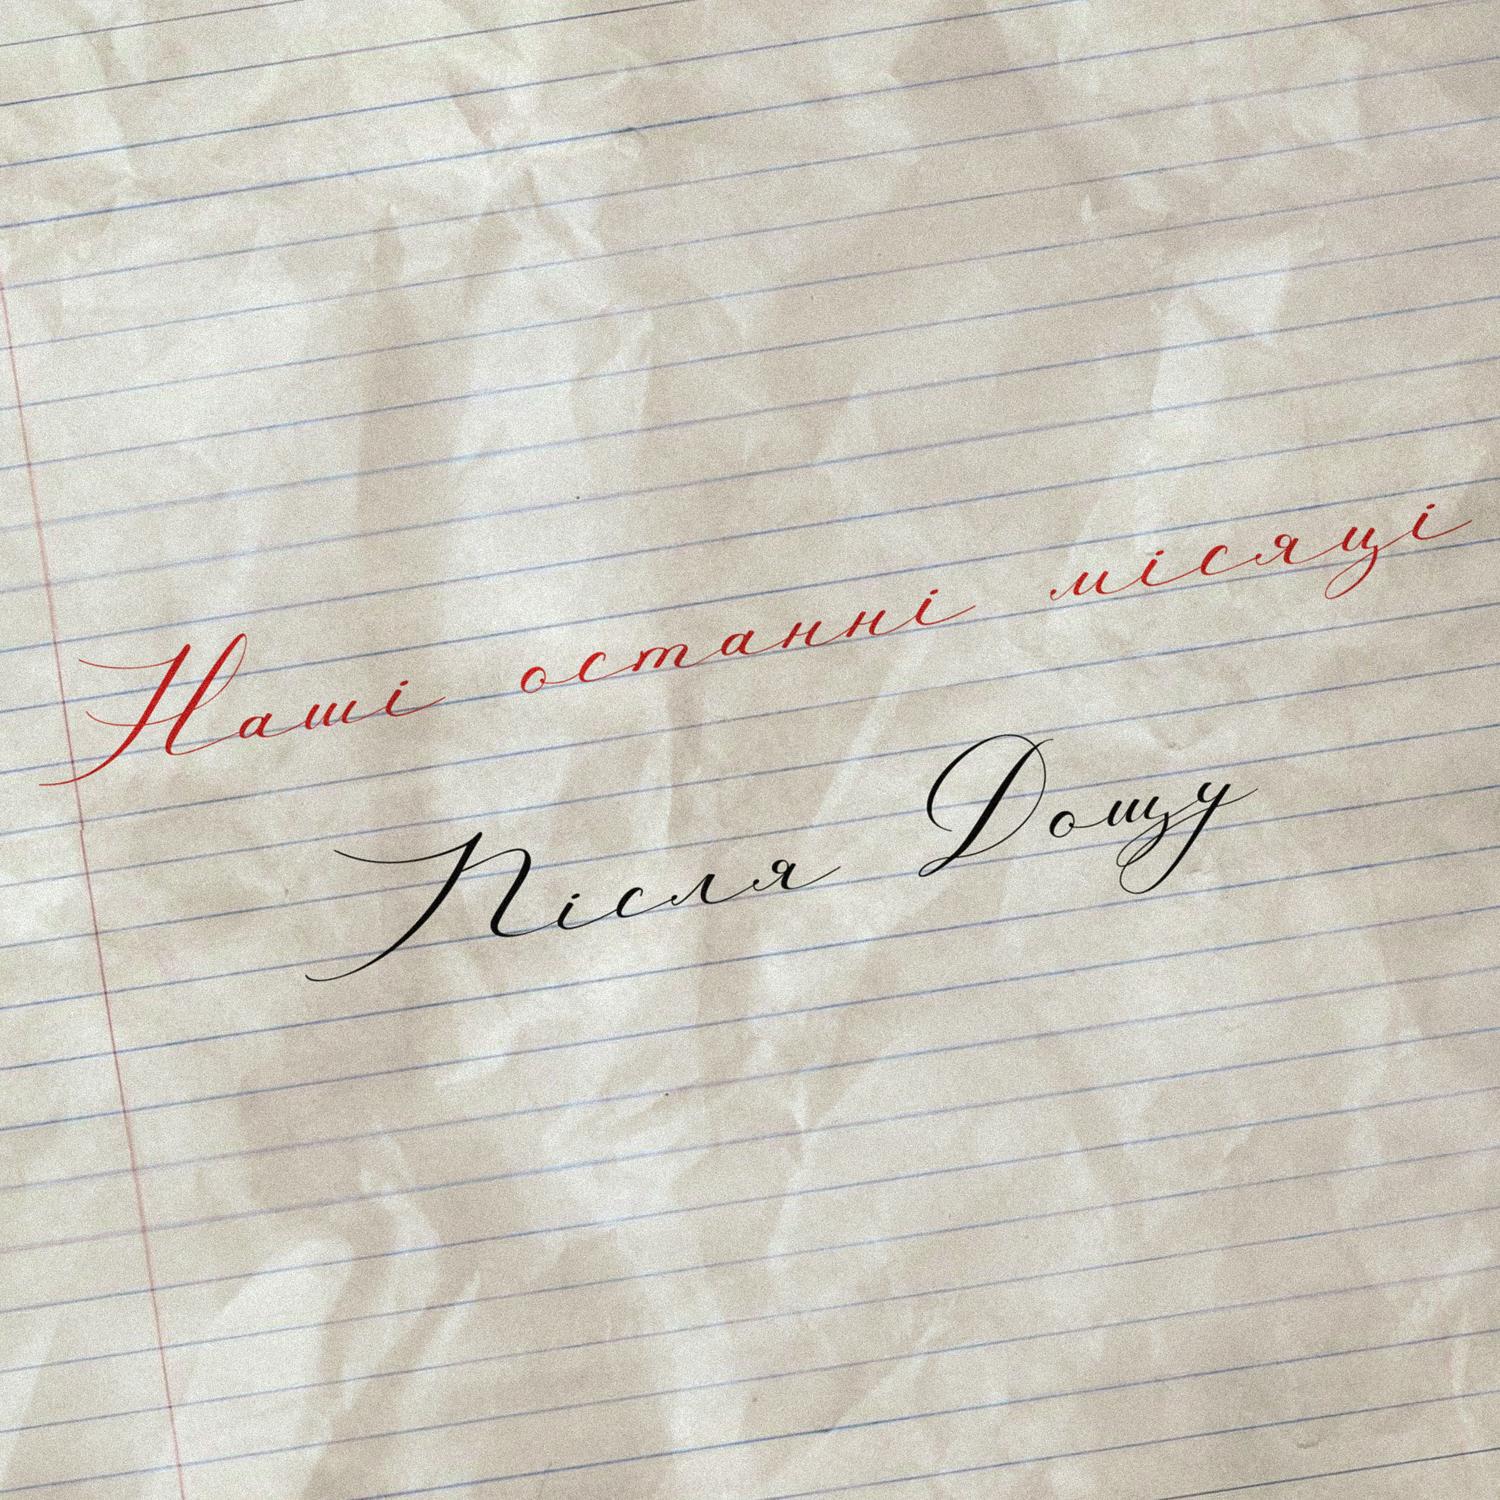 Наші останні місяці
Після Дощу